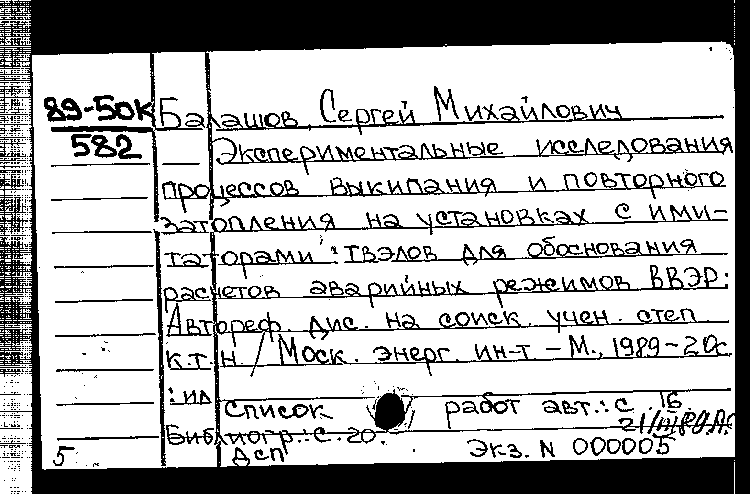 89-50к Балашов, Сергей Михайлович
582 Экспериментальные исследования
процессов выкипания и повторного
затопления на установках с ими-
таторами твэлов для обоснования
расчетов аварийных режимов ВВЭР:
Автореф. дис. на соиск. учен. степ.
к.т.н. / Моск. энерг. ин-т. - М., 1989 - 20с.
: ил
Список работ авт.: с. 16
Библиогр.: с. 20.
5 Дсп Экз. N 000005